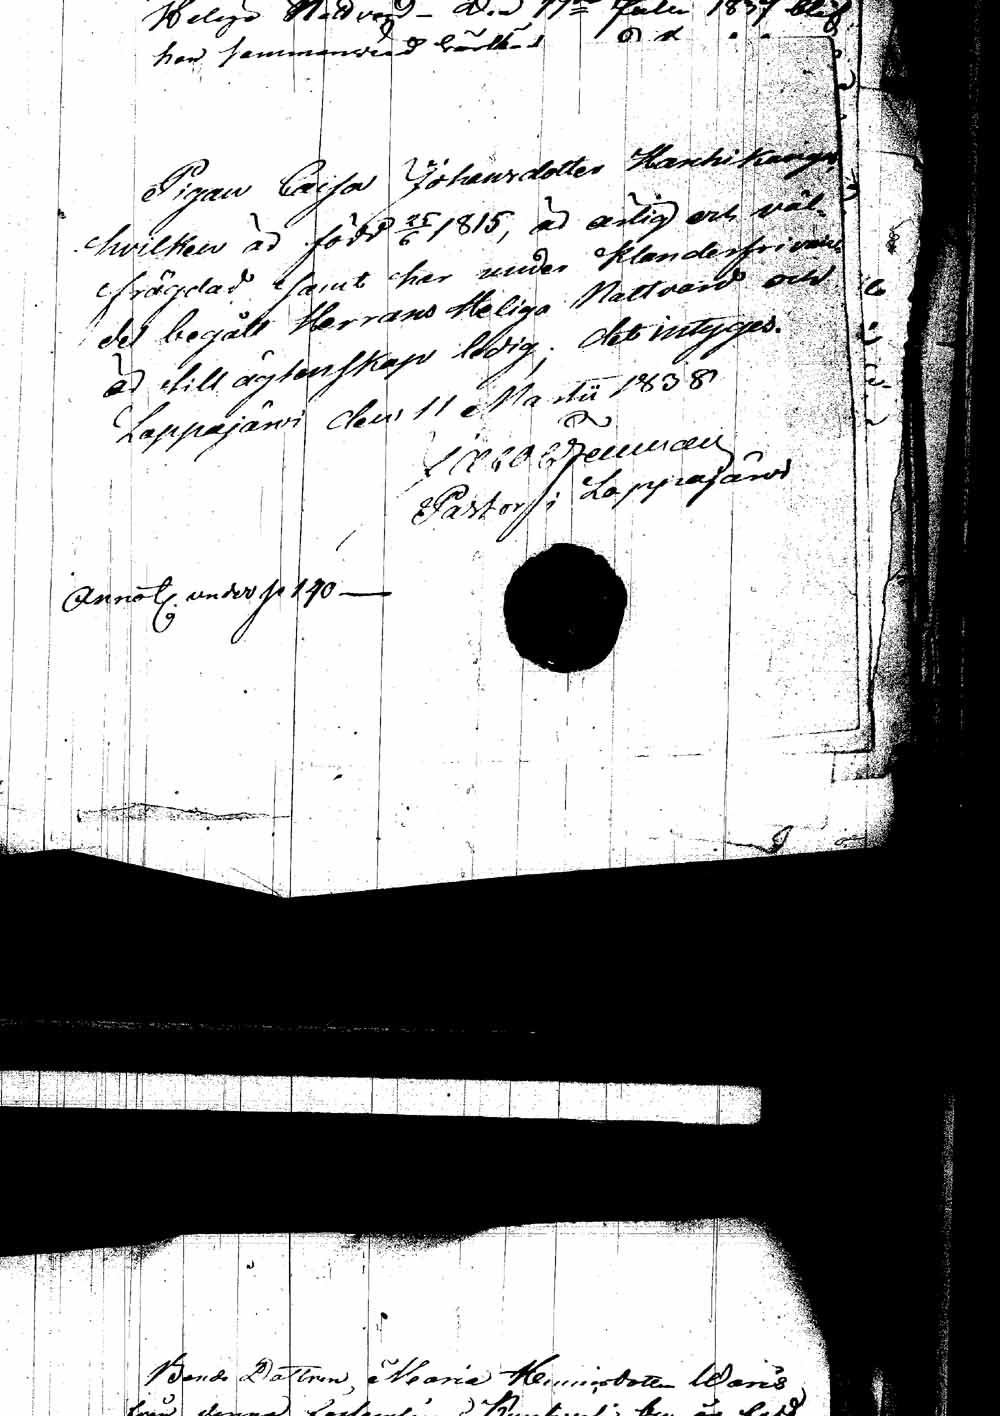 Heliga Nattvard – Den 17de Julii 1837 blef
han sammanvigd
Pigan Caisa Johansdotter Hanhikangas,
hvilken är född 25/6 1815, är ärlig och väl-
frägdad samt har under klanderfri van-
del begått Herrans Heliga Nattvard och
är till ägtenskap ledig; det intyges.
Lappajärvi den 11 Martii 1838
Pastor i Lappajärvi
Annot. under p 140 —
Bonde Dottren, Maria
från denna